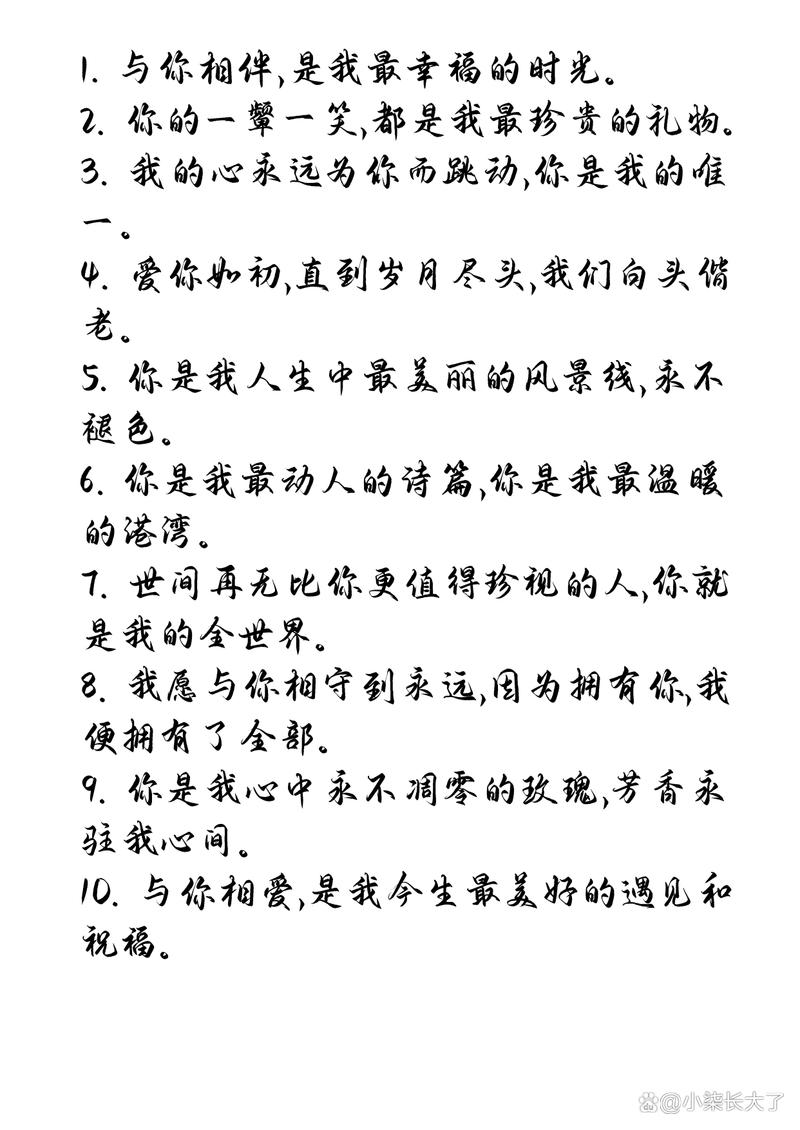 1. 与你相伴,是我最幸福的时光。
2. 你的一颦一笑,都是我最珍贵的礼物。
3. 我的心永远为你而跳动,你是我的唯
一。
4. 爱你如初,直到岁月尽头,我们向头偕
老。
5. 你是我人生中最美丽的风景线,永不
褪色。
6. 你是我最动人的诗篇,你是我最温暖
的港湾。
7. 世间再无比你更值得珍视的人,你就
是我的全世界。
8. 我愿与你相守到永远,因为拥有你,我
便拥有了全部。
9. 你是我心中永不凋零的玫瑰,芳香永
驻我心间。
10. 与你相爱,是我今生最美好的遇见和
祝福。
@小柒长大了